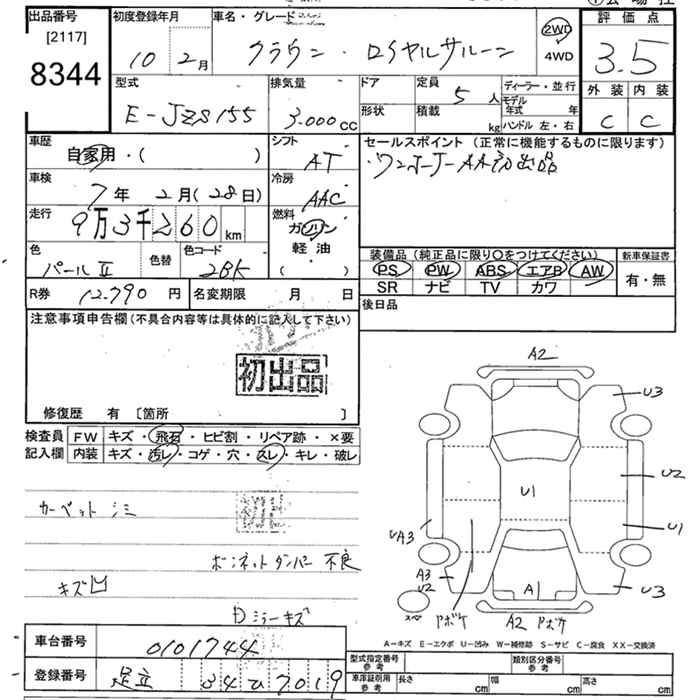 出品番号
[2117]
8344
初度登録年月
10 2月
車名・グレード
クラウン・ロイヤルサルーン
2WD
4WD
評価点
3.5
外装 内装
C C
型式
E-JZS155
排気量
3.000cc
ドア
形状
定員
5人
積載
kg
ディーラー・並行
モデル年式 年
ハンドル 左・右
車歴
自家用・( )
シフト
AT
セールスポイント (正常に機能するものに限ります)
ワンオーナーAA初出品
車検
7年 2月(28日)
冷房
AAC
走行
9万3千260km
燃料
ガソリン
軽油
( )
色
パールⅡ
色替
色コード
2BK
装備品 (純正品に限り〇をつけてください)
PS PW ABS エアB AW
SR ナビ TV カワ
新車保証書
有・無
R券
12.790円
名変期限 月 日
後日品
注意事項申告欄(不具合内容等は具体的に記入して下さい)
初出品
修復歴 有 [箇所 ]
検査員
記入欄
FW キズ・飛石・ヒビ割・リペア跡・×要
内装 キズ・汚レ・コゲ・穴・スレ・キレ・破レ
カーペット シミ
ボンネットダンパー 不良
キズ凹
Dミラーキズ
A2
U3
U2
U1
U1
UA3
A3
U2
U3
A1
スペ
Pボケ
A2 Pボケ
A-キズ E-エクボ U-凹み W-補修跡 S-サビ C-腐食 XX-交換済
車台番号
0101744
登録番号
足立 34 ひ 7019
型式指定番号
参考
類別区分番号
参考
車庫証明用
参考
長さ cm
幅 cm
高さ cm